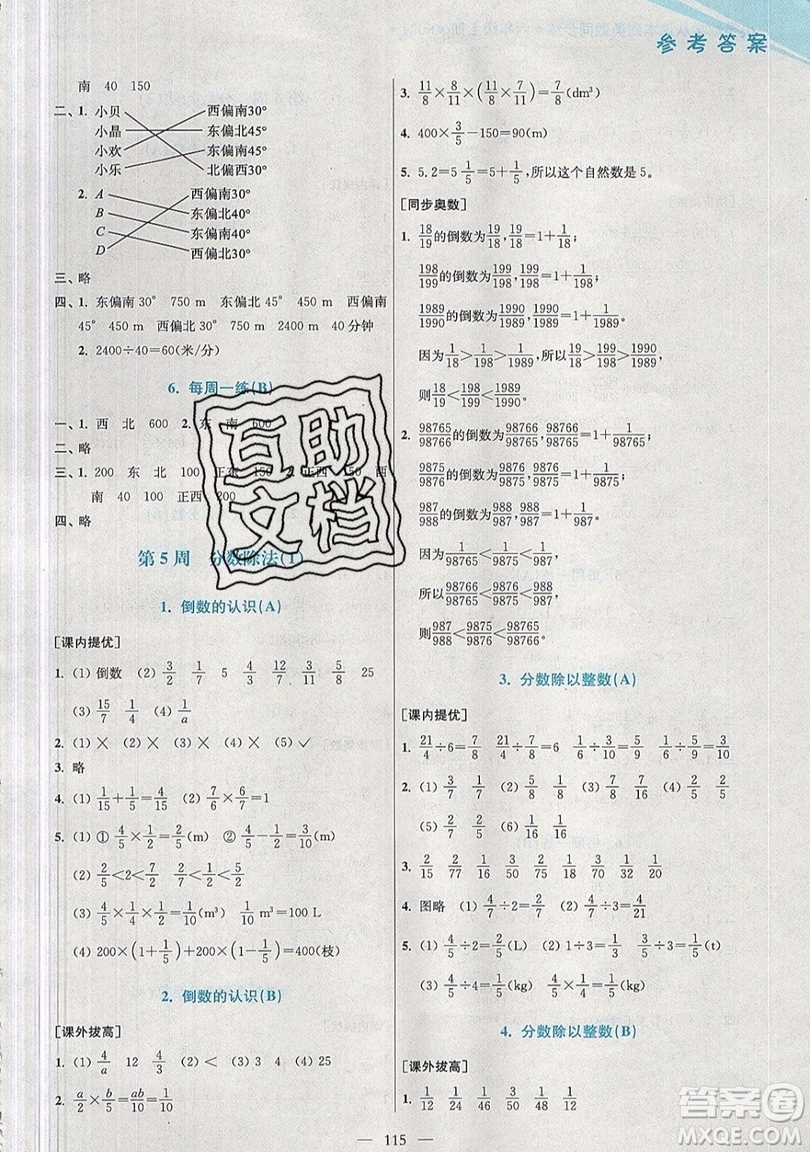 参考答案
南 40 150
二、1. 小贝 西偏南30°
小晶 东偏北45°
小欢 东偏南45°
小乐 北偏西30°
2. A 西偏南30°
B 东偏北40°
C 东偏南40°
D 西偏北30°
三、略
四、1. 东偏南30° 750 m 东偏北45° 450 m 西偏南
45° 450 m 西偏南30° 750 m 2400 m 40分钟
2. 2400÷40=60(米/分)
6. 每周一练(B)
一、1. 西 北 600 2. 东 南 600
二、略
三、1. 200 东 北 100 正东 150 2. 正西 150 西
南 40 100 正西 200
四、略
第5周 分数除法(1)
1. 倒数的认识(A)
[课内提优]
1. (1) 倒数 (2) 3/2 1/7 5 4/3 12/7 3/11 5/8 25
(3) 15/7 1/4 (4) 1/a
2. (1)× (2)× (3)× (4)× (5)✓
3. 略
4. (1) 1/15+1/5=4/15 (2) 7/6×6/7=1
5. (1) ① 4/5×1/2=2/5(m) ② 4/5-1/2=3/10(m)
(2) 2/5<2<7/2 2/7<1/2<5/2
(3) 4/5×1/2×1/4=1/10(m³) 1/10 m³=100 L
(4) 200×(1+1/5)+200×(1-1/5)=400(枝)
2. 倒数的认识(B)
[课外拔高]
1. (1) 4/a 12 4/3 (2) < (3) 3 4 (4) 25
2. a/2×b/5=ab/10=1/10
3. 11/8×8/11×(8/11×7/11×11/8)=7/8(dm³)
4. 400×3/5-150=90(m)
5. 5.2=5 1/5=5+1/5,所以这个自然数是5。
[同步奥数]
1. 18/19的倒数为19/18,19/18=1+1/18;
198/199的倒数为199/198,199/198=1+1/198;
1989/1990的倒数为1990/1989,1990/1989=1+1/1989;
因为1/18>1/198>1/1989,所以19/18>199/198>1990/1989,
则18/19<198/199<1989/1990。
2. 98765/98766的倒数为98766/98765,98766/98765=1+1/98765;
9875/9876的倒数为9876/9875,9876/9875=1+1/9875;
987/988的倒数为988/987,988/987=1+1/987;
因为1/98765<1/9875<1/987,
所以98766/98765<9876/9875<988/987,
则987/988<9875/9876<98765/98766。
3. 分数除以整数(A)
[课内提优]
1. 21/4÷6=7/8 21/4÷7=6/8 1/6÷3/10=5/9 5/9÷3/10
2. (1) 3/7 1/7 (2) 5/8 1/8 (3) 7/8 7/16 (4) 4/5 1/5
(5) 2/7 2/7 (6) 1/16 1/16
3. 2/15 2/77 1/16 3/50 2/75 1/18 3/70 1/32 1/20
4. 图略 (1) 4/7÷2=2/7 (2) 4/7÷3=4/21
5. (1) 4/5÷2=2/5(L) (2) 1÷3=1/3 3/5÷3=1/5(t)
(3) 4/5÷4=1/5(kg) 4/5×1/5=4/25(kg)
4. 分数除以整数(B)
[课外拔高]
1. 1/12 1/24 1/2 1/5 1/8 1/12
115
互助
文档
答案圈
MXQE.COM